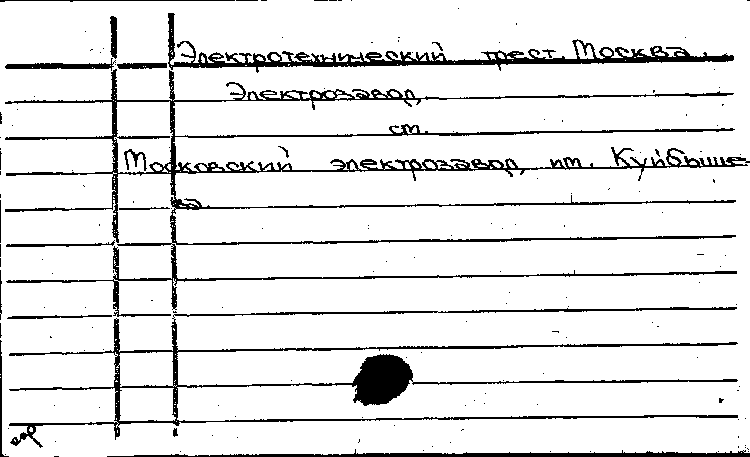 Электротехнический трест. Москва.
Электрозавод,
ст.
Московский электрозавод, им. Куйбыше-
ва.